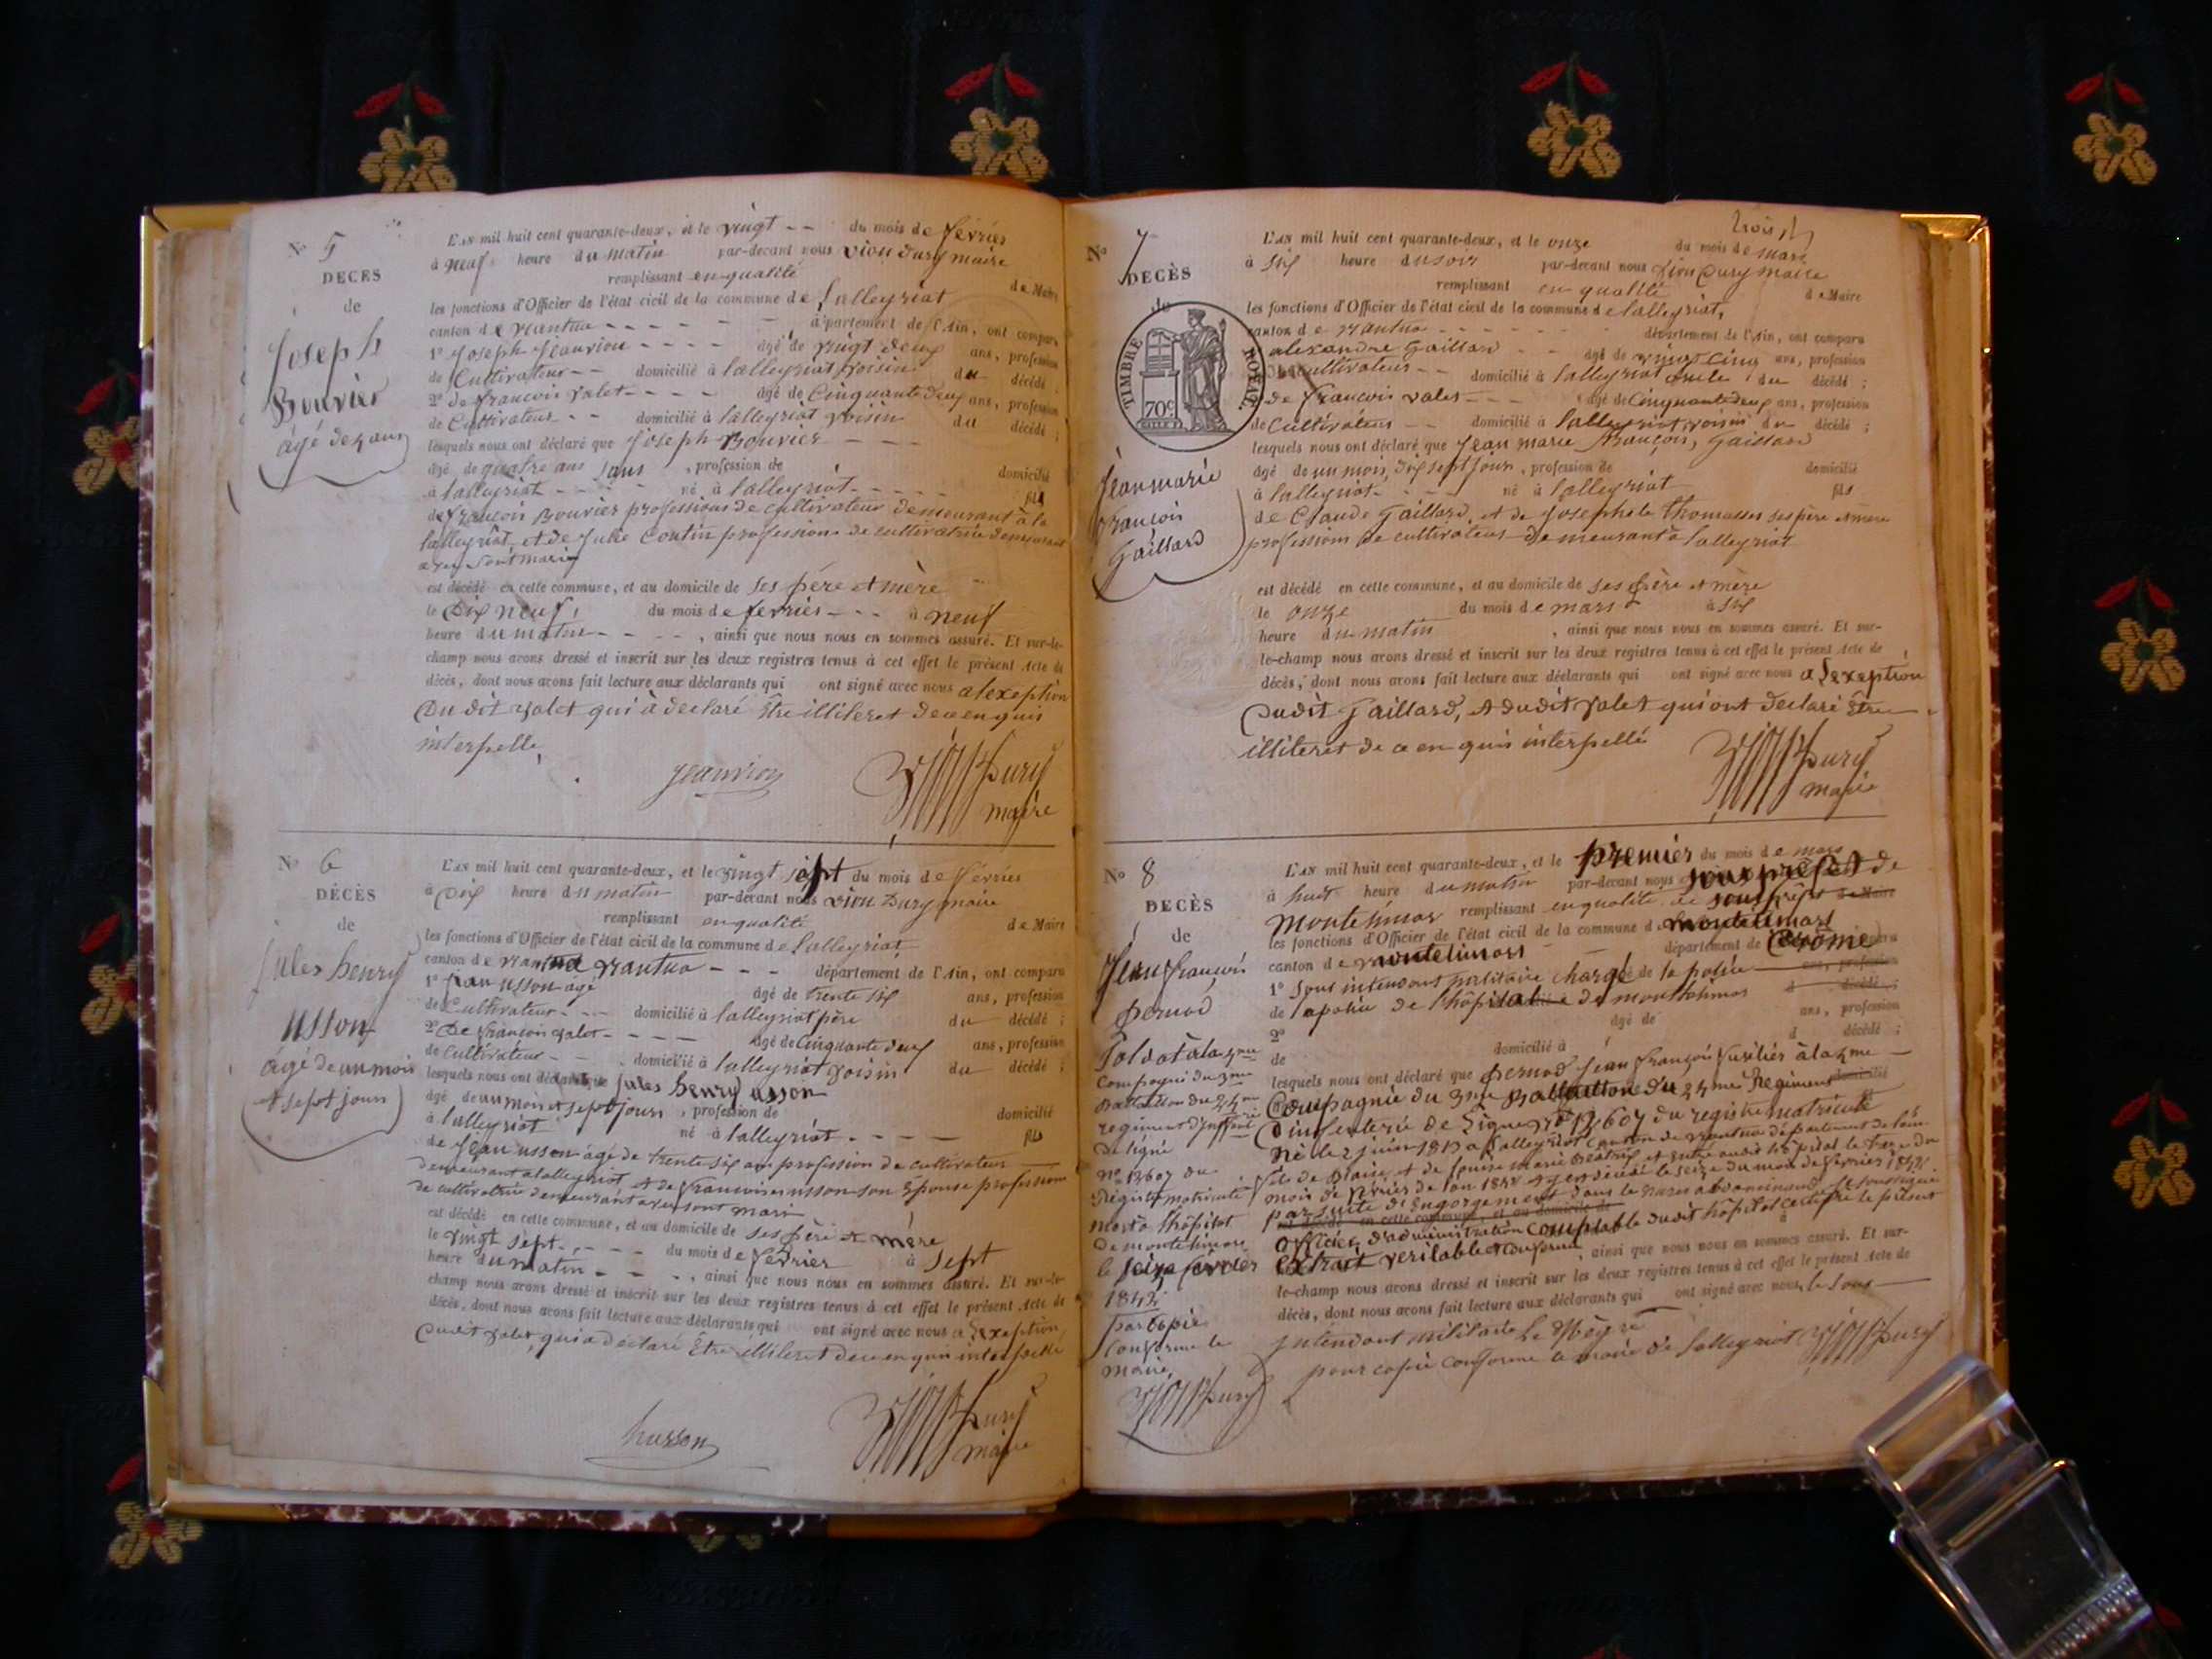 N° 5
DÉCÈS
de
Joseph
Bouvier
âgé de 4 ans
L'AN mil huit cent quarante-deux, et le vingt -- du mois de février
à neuf heure du matin par-devant nous Vion Dury maire
remplissant en qualité de Maire
les fonctions d'Officier de l'état civil de la commune de Lalleyriat
canton de Nantua - - - - - - département de l'Ain, ont comparu
1° Joseph Jeanvion - - - - âgé de vingt deux ans, profession
de Cultivateur -- domicilié à lalleyriat voisin du décédé ;
2° de françois valet - - - - âgé de Cinquante deux ans, profession
de Cultivateur - - domicilié à lalleyriat voisin du décédé ;
lesquels nous ont déclaré que Joseph Bouvier - - -
âgé de quatre ans sans , profession de domicilié
à lalleyriat - - - - né à lalleyriat - - - - - fils
de françois Bouvier professions de cultivateur demeurant à la
lalleyriat et de Julie Coutin professions de cultivatrice demeurant
avec sont mari
est décédé en cette commune, et au domicile de ses père et mère
le Dix neuf, du mois de ferrier - - - à neuf
heure du matin - - - - , ainsi que nous nous en sommes assuré. Et sur-le-
champ nous avons dressé et inscrit sur les deux registres tenus à cet effet le présent Acte de
décès, dont nous avons fait lecture aux déclarants qui ont signé avec nous alexeption
Du dit valet qui à declaré être illiteret dece enquis
interpelle,
Jeanvion
Vion Dury
maire
N° 6
DÉCÈS
de
jules henry
usson
âgé de un mois
et sept jours
L'AN mil huit cent quarante-deux, et le vingt sept du mois de février
à Dix heure du matin par-devant nous Vion Dury maire
remplissant en qualité de Maire
les fonctions d'Officier de l'état civil de la commune de Lalleyriat
canton de Nantua - - - département de l'Ain, ont comparu
1° jean usson agé âgé de trente six ans, profession
de Cultivateur - - - domicilié à lalleyriat père du décédé ;
2° De françois valet - - - - âgé de Cinquante deux ans, profession
de Cultivateur - - domicilié à lalleyriat voisin du décédé ;
lesquels nous ont déclaré que jules henry usson
âgé de un mois et sept jours , profession de domicilié
à lalleyriat né à lalleyriat - - - - fils
de Jean usson âgé de trente six ans profession de cultivateur
demeurant a lalleyriat et de francoise usson son Epouse profession
de cultivatrice demeurant avec sont mari
est décédé en cette commune, et au domicile de ses père et mère
le vingt sept - - - du mois de février à sept
heure du matin - - - , ainsi que nous nous en sommes assuré. Et sur-le-
champ nous avons dressé et inscrit sur les deux registres tenus à cet effet le présent Acte de
décès, dont nous avons fait lecture aux déclarants qui ont signé avec nous a lexeption
dudit valet, qui a declaré être illiteret dece enquis interpelle
husson
Vion Dury
maire
trois
N° 7
DÉCÈS
de
TIMBRE ROYAL
70c
Jean marie
françois
Gaillard
L'AN mil huit cent quarante-deux, et le onze du mois de mars
à six heure du soir par-devant nous Vion Dury maire
remplissant en qualité de Maire
les fonctions d'Officier de l'état civil de la commune de lalleyriat,
canton de Nantua - - - - - département de l'Ain, ont comparu
alexandre Gaillard - - âgé de vingt cinq ans, profession
cultivateur - - domicilié à lalleyriat oncle du décédé ;
de françois valet - - - âgé de Cinquante deux ans, profession
de Cultivateur - - domicilié à lalleyriat voisin du décédé ;
lesquels nous ont déclaré que Jean marie françois, Gaillard
âgé de un mois, dix sept jours , profession de domicilié
à lalleyriat - - - né à lalleyriat fils
de Claude Gaillard, et de Josephete thomasset ses père et mère
professions de cultivateur demeurant à lalleyriat
est décédé en cette commune, et au domicile de ses père et mère
le onze du mois de mars à six
heure du matin , ainsi que nous nous en sommes assuré. Et sur-
le-champ nous avons dressé et inscrit sur les deux registres tenus à cet effet le présent Acte de
décès, dont nous avons fait lecture aux déclarants qui ont signé avec nous a lexeption
Dudit Gaillard, et dudit valet qui ont declaré être
illiteret de ce en quis interpellé
Vion Dury
maire
N° 8
DÉCÈS
de
Jean françois
pernod
Soldat à la 4me
Compagnie du 3me
Battaillon du 24me
regiment d'Inffenterie
De ligne
n° 13607 du
Registre matricule
mort à l'hôpital
De montelimare
le seize février
1842
par Copie
Conforme le
maire
Vion Dury
L'AN mil huit cent quarante-deux, et le premier du mois de mars
à huit heure du matin par-devant nous sous préfet de
Montelimar remplissant en qualité de sous préfet de Maire
les fonctions d'Officier de l'état civil de la commune de montelimart
canton de montelimart département de Drome
1° sous intendant militaire chargé de la police
de la police de l'hôpital de montelimar
2° âgé de ans, profession
de domicilié à d décédé ;
lesquels nous ont déclaré que pernod Jean françois fusilier à la 4me
Compagnie du 3me Battaillon du 24me Regiment
D'infenterie de Ligne, n° 13,607 du registre matricule
né le 2 juin 1813 à lalleyriat Canton de Nantua département de l'ain
fils de Blaise et de louise marie Beatrix et entré audit hôpital le treze du
mois de février de lan 1842 et y est décédé le seize du mois de février 1842
par suite d'Engorgement dans le
officier d'administration Comptable dudit hôpital certifie le présent
Extrait veritable et conforme , ainsi que nous nous en sommes assuré. Et sur-
le-champ nous avons dressé et inscrit sur les deux registres tenus à cet effet le présent Acte de
décès, dont nous avons fait lecture aux déclarants qui ont signé avec nous, le sous
intendant militaire
pour copie conforme le maire de lalleyriat Vion Dury